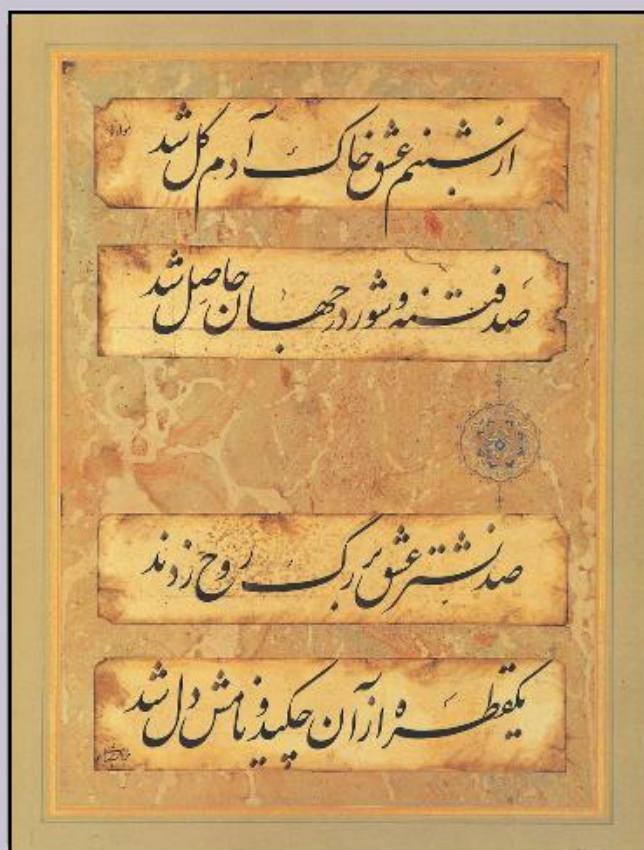 از شبنم عشق خاک آدم گل شد
صد فتنه و شور در جهان حاصل شد
صد نشتر عشق بر رگ روح زدند
یکقطره از آن چکید و نامش دل شد